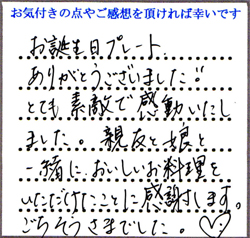 お気付きの点やご感想を頂ければ幸いです
お誕生日プレート、
ありがとうございました!!
とても素敵で感動いたし
ました。親友と娘と
一緒に、おいしいお料理を
いただけたことに感謝します。
ごちそうさまでした。♡